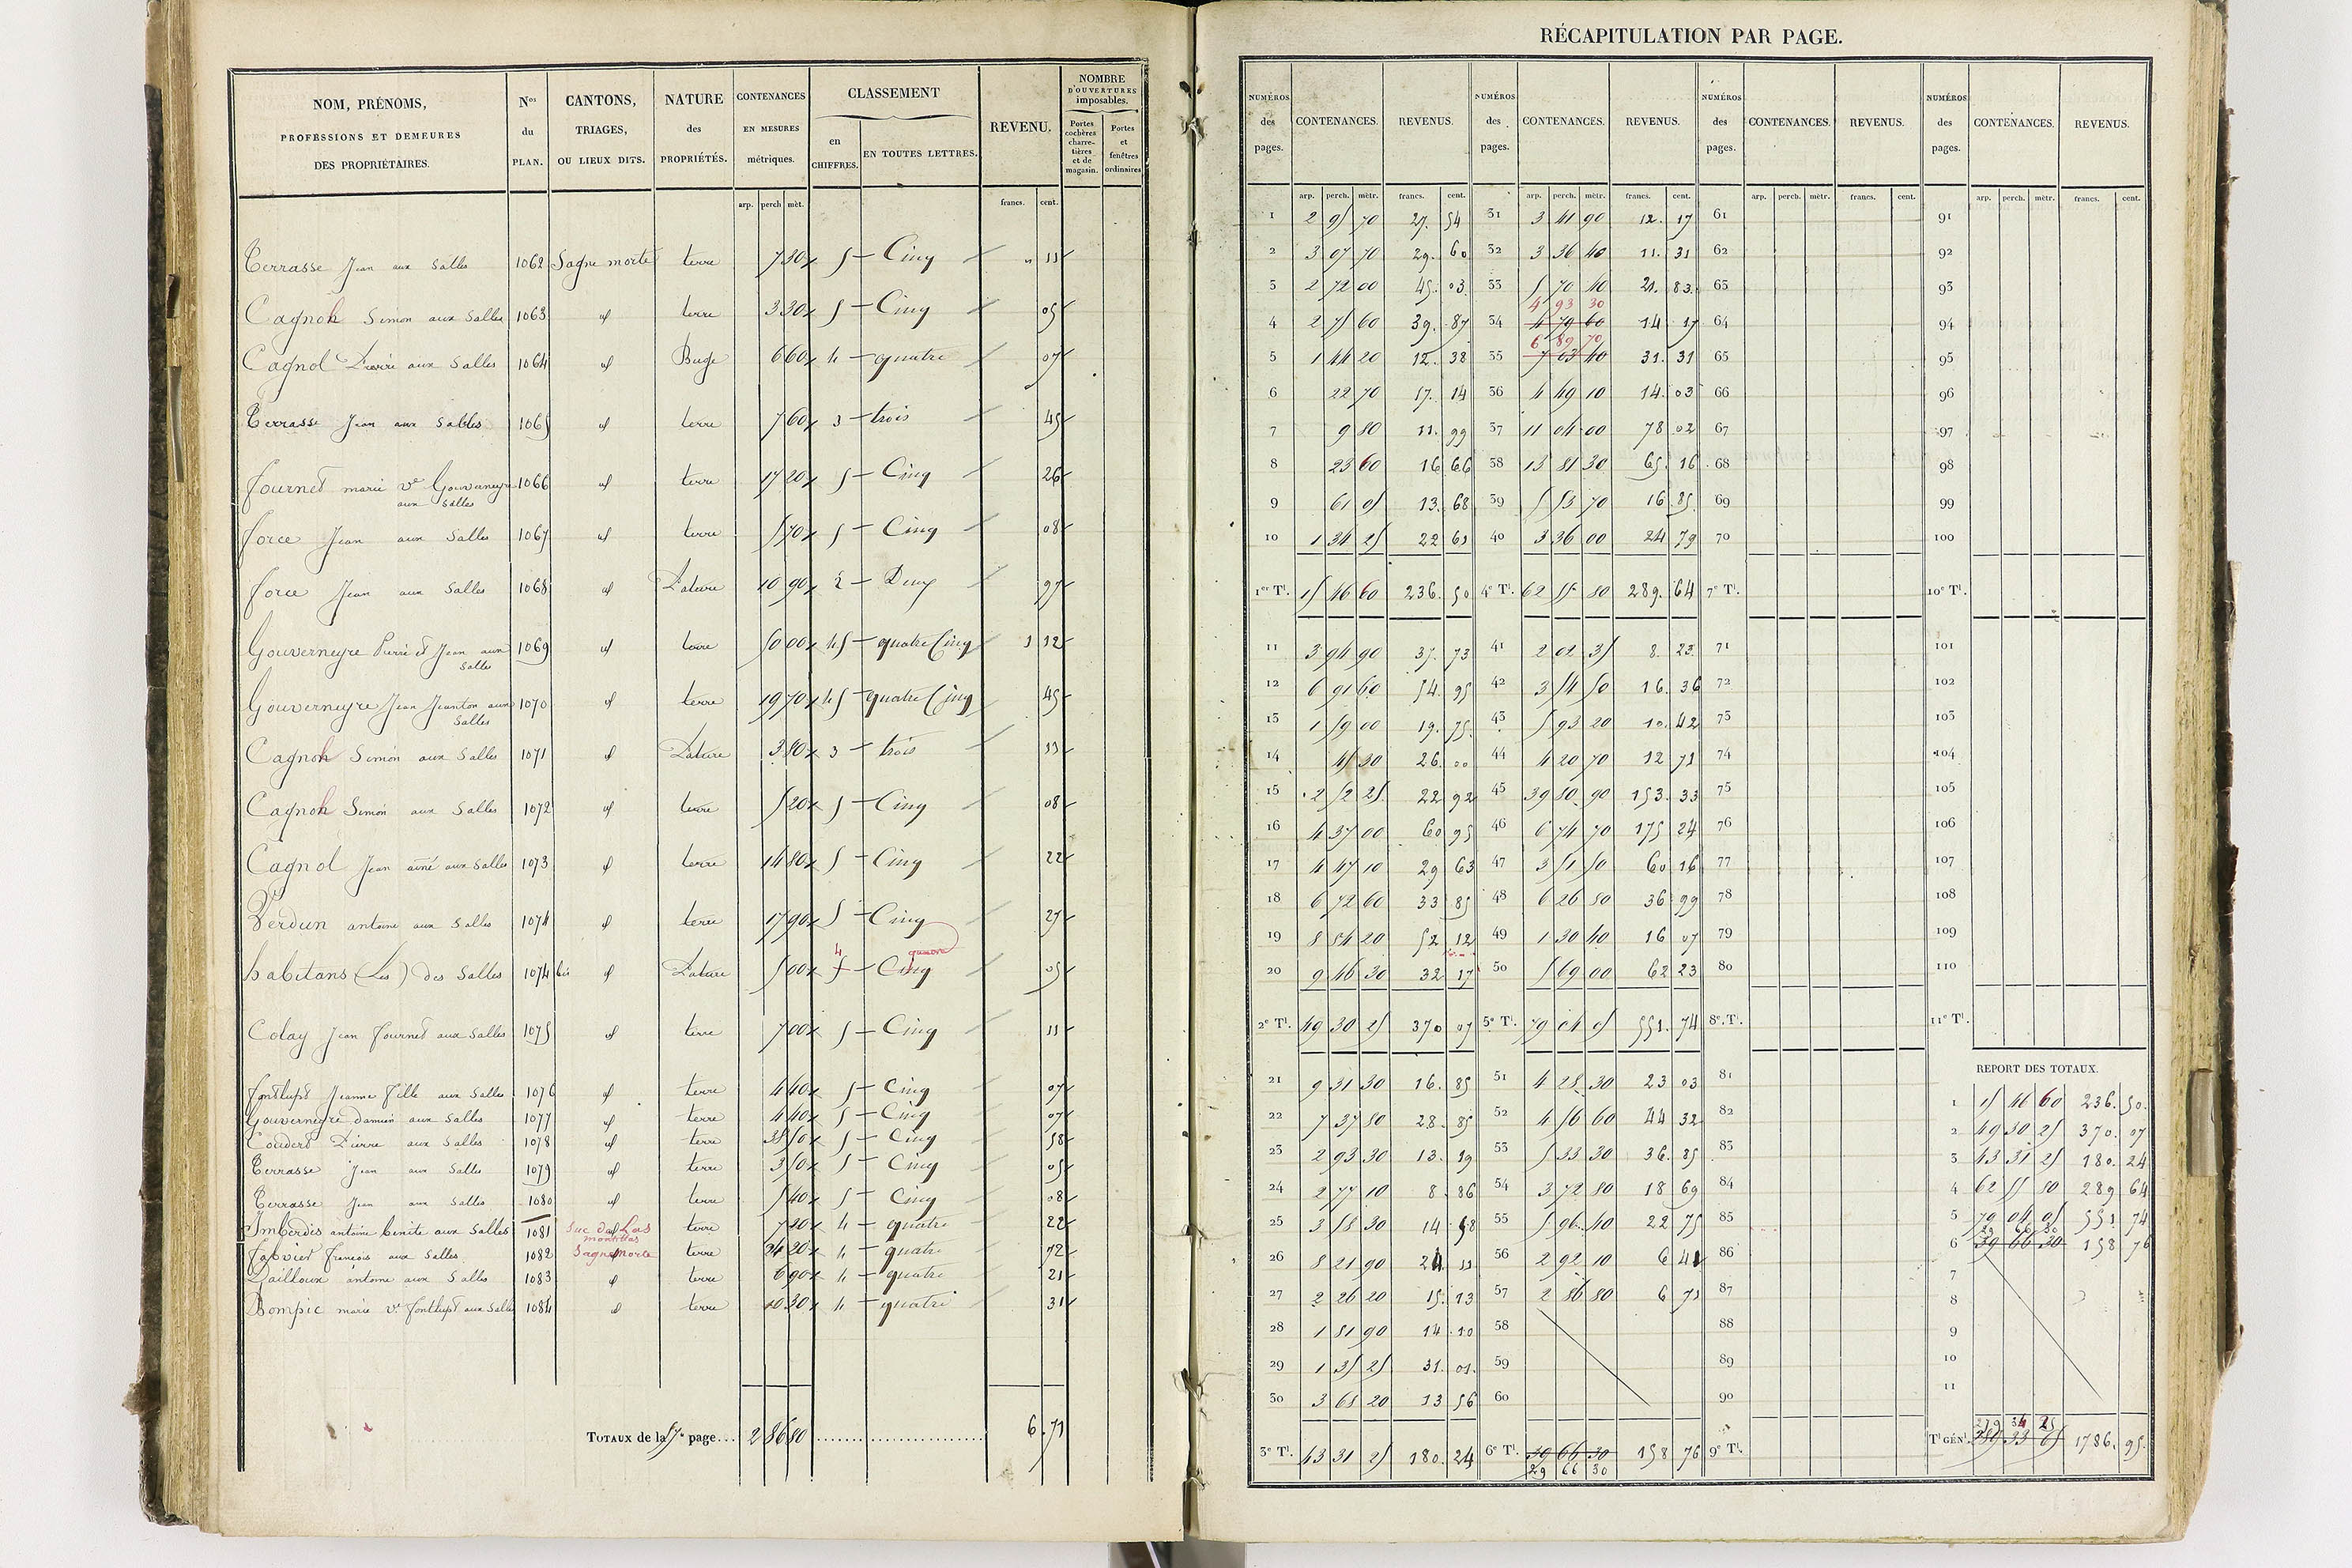 NOM, PRÉNOMS,
PROFESSIONS ET DEMEURES
DES PROPRIÉTAIRES.
Nos
du
PLAN.
CANTONS,
TRIAGES,
OU LIEUX DITS.
NATURE
des
PROPRIÉTÉS.
CONTENANCES
EN MESURES
métriques.
CLASSEMENT
en
CHIFFRES.
EN TOUTES LETTRES.
REVENU.
NOMBRE
D'OUVERTURES
imposables.
Portes
cochères
charre-
tières
et de
magasin.
Portes
et
fenêtres
ordinaires
arp. perch mèt. francs. cent.
Terrasse Jean aux Salles 1062 Sagne morte terre 7 30 5 Cinq " 11
Cagnol Simon aux Salles 1063 id terre 3 30 5 Cinq 05
Cagnol Pierre aux Salles 1064 id Buge 6 60 4 quatre 07
Terrasse Jean aux Salles 1065 id terre 7 60 3 trois 45
fournet marie ve Gouverneyre 1066 id terre 17 20 5 Cinq 26
aux Salles
force Jean aux Salles 1067 id terre 5 70 5 Cinq 08
force Jean aux Salles 1068 id Pature 10 90 2 Deux 97
Gouverneyre Pierre et Jean aux 1069 id terre 50 00 45 quatre Cinq 1 12
Salles
Gouverneyre Jean Jeanton aux 1070 id terre 19 70 45 quatre Cinq 45
Salles
Cagnol Simon aux Salles 1071 id Pature 3 80 3 trois 11
Cagnol Simon aux Salles 1072 id terre 5 20 5 Cinq 08
Cagnol Jean ainé aux Salles 1073 id terre 14 80 5 Cinq 22
Verdun antoine aux Salles 1074 id terre 17 90 5 Cinq 27
4 quatre
habitans (Les) des Salles 1074 bis id Pature 5 00 5 Cinq 05
Colay Jean fournet aux Salles 1075 id terre 7 00 5 Cinq 11
fontlupt Jeanne fille aux Salles 1076 id terre 4 40 5 Cinq 07
Gouverneyre damien aux Salles 1077 id terre 4 40 5 Cinq 07
Couderd Pierre aux Salles 1078 id terre 38 50 5 Cinq 58
Terrasse Jean aux Salles 1079 id terre 3 50 5 Cinq 05
Terrasse Jean aux Salles 1080 id terre 5 40 5 Cinq 08
Imberdis antoine benite aux Salles 1081 Suc da Las terre 7 20 4 quatre 22
francois aux Salles 1082 Sagne Morte terre 24 20 4 quatre 72
Dailloux antoine aux Salles 1083 id terre 6 90 4 quatre 21
Bompic marie ve fontlupt aux Salles 1084 id terre 10 30 4 quatre 31
TOTAUX de la 57e page... 2 86 80 6. 71
RÉCAPITULATION PAR PAGE.
NUMÉROS des pages. CONTENANCES. REVENUS. NUMÉROS des pages. CONTENANCES. REVENUS. NUMÉROS des pages. CONTENANCES. REVENUS. NUMÉROS des pages. CONTENANCES. REVENUS.
arp. perch. mètr. francs. cent. arp. perch. mètr. francs. cent. arp. perch. mètr. francs. cent. arp. perch. mètr. francs. cent.
1 2 95 70 27. 54 31 3 41 90 12. 17 61 91
2 3 07 70 29. 60 32 3 36 40 11. 31 62 92
3 2 72 00 45. 03 33 5 70 40 21. 83 63 93
4 93 30
4 2 75 60 39. 87 34 4 79 60 14 17 64 94
6 89 70
5 1 44 20 12. 38 35 7 03 40 31. 31 65 95
6 22 70 17. 14 36 4 49 10 14. 03 66 96
7 9 80 11. 99 37 11 04 00 78 02 67 97
8 23 60 16 66 38 13 81 30 65. 16 68 98
9 61 05 13. 68 39 5 53 70 16 85 69 99
10 1 34 25 22 61 40 3 36 00 24 79 70 100
1er Tl. 15 46 60 236. 50 4e Tl. 62 55 80 289. 64 7e Tl. 10e Tl.
11 3 94 90 37. 73 41 2 02 35 8. 23 71 101
12 6 91 60 54. 95 42 3 54 50 16. 36 72 102
13 1 59 00 19. 75 43 5 93 20 10. 42 73 103
14 45 30 26 00 44 4 20 70 12 71 74 104
15 2 52 25 22 92 45 39 80 90 153. 33 75 105
16 4 37 00 60 95 46 6 74 70 175 24 76 106
17 4 47 10 29 63 47 3 51 50 60 16 77 107
18 6 72 60 33 85 48 6 26 80 36 99 78 108
19 8 84 20 52 12 49 1 30 40 16 07 79 109
20 9 46 30 32 17 50 5 69 00 62 23 80 110
2e Tl. 49 30 25 370 07 5e Tl. 79 04 05 551. 74 8e. Tl. 11e Tl.
REPORT DES TOTAUX.
21 9 31 30 16. 85 51 4 28 30 23 03 81
22 7 37 80 28. 85 52 4 56 60 44 32 82
23 2 93 30 13. 19 53 5 33 30 36. 85 83
24 2 77 10 8 86 54 3 72 80 18 69 84
25 3 58 30 14 58 55 5 96 40 22 75 85
26 8 21 90 24 11 56 2 92 10 6 41 86
27 2 26 20 15. 13 57 2 86 80 6 71 87
28 1 81 90 14 10 58 88
29 1 35 25 31. 01 59 89
30 3 68 20 13 56 60 90
3e Tl. 43 31 25 180. 24 6e Tl. 39 66 30 158 76 9e Tl.
29 66 30
1 15 46 60 236. 50
2 49 30 25 370. 07
3 43 31 25 180. 24
4 62 55 80 289 64
5 79 04 05 551. 74
29 66 30
6 39 66 30 158 76
7
8
9
10
11
279 34 25
Tl GÉNl. 289 33 65 1786. 95